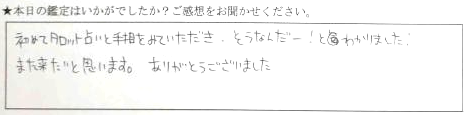 ★本日の鑑定はいかがでしたか？ご感想をお聞かせください。
初めてタロット占いと手相をみていただき、そうなんだー！とわかりました！
また来たいと思います。ありがとうございました